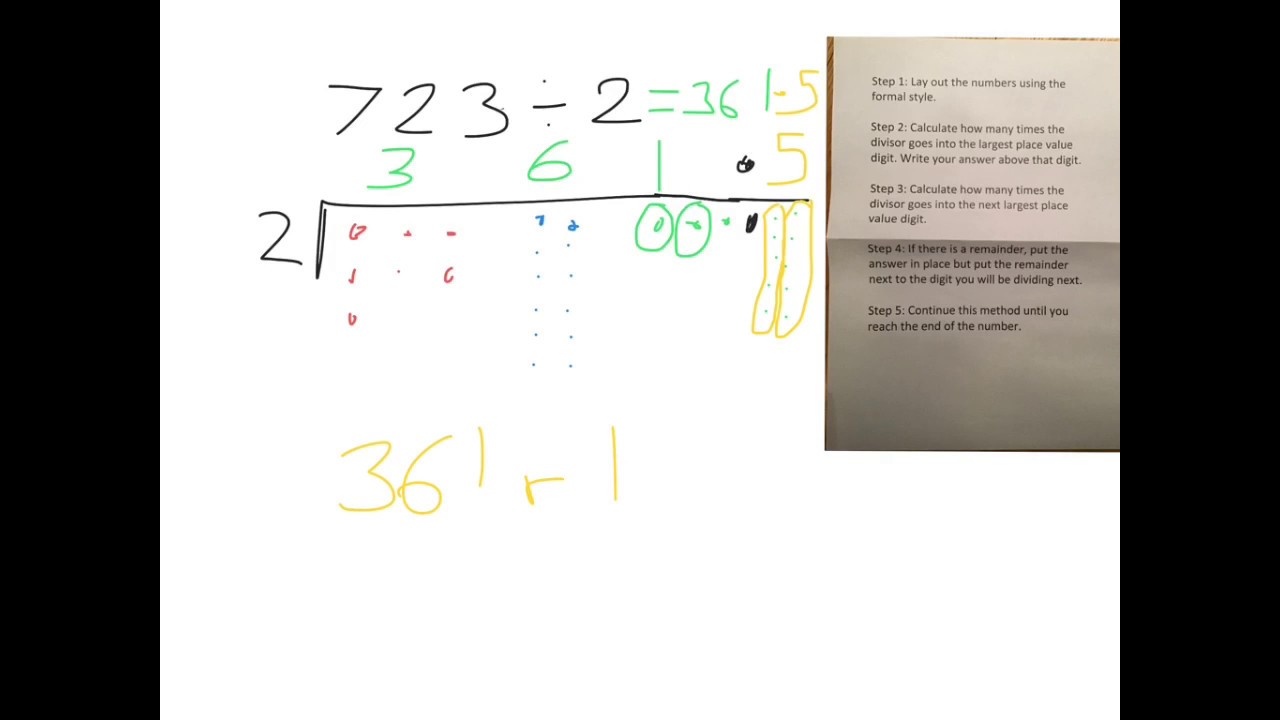 723 ÷ 2 = 361.5
3 6 1 . 5
2
361 r 1
Step 1: Lay out the numbers using the
formal style.
Step 2: Calculate how many times the
divisor goes into the largest place value
digit. Write your answer above that digit.
Step 3: Calculate how many times the
divisor goes into the next largest place
value digit.
Step 4: If there is a remainder, put the
answer in place but put the remainder
next to the digit you will be dividing next.
Step 5: Continue this method until you
reach the end of the number.